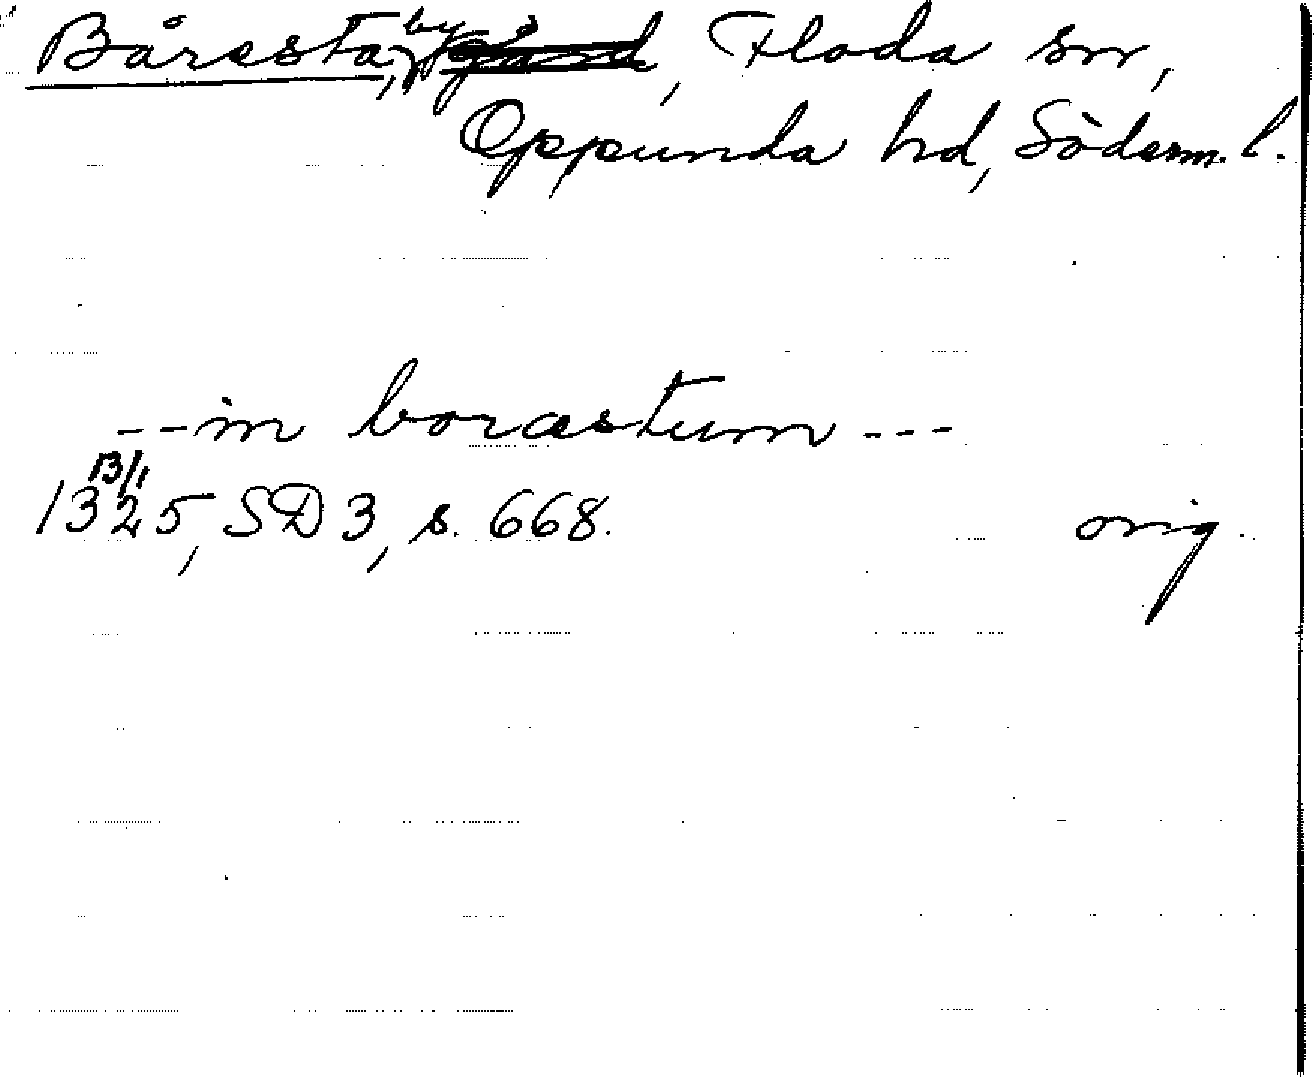 Båresta, by, Floda sn,
Oppunda hd, Söderm. l.
--in boræstum---
13/1
1325, SD 3, s. 668. orig.